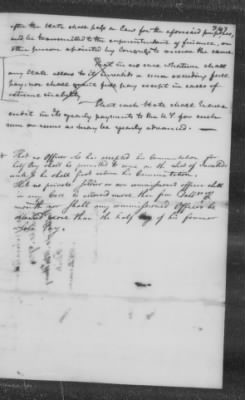 after the State shall pass a Law for the aforesaid purposes,
and be transmitted to the superintendant of finance, or
other person appointed by Congress to receive the same.
That in no case whatever shall
any State allow to its invalids a sum exceeding
pay nor shall full pay except in cases of
That each State shall have
credit in its yearly payments to the U S for such
sum or sums as may be yearly advanced.
That no Officer who has accepted his Commutation for
half Pay shall be permitted to come on the List of Invalids
until he shall first return his Commutation;
That no private soldier or non commissioned officer shall
in any case be allowed more than five
month nor shall any commissioned Officer be
allowed more than the half Pay of his former
whole Pay.